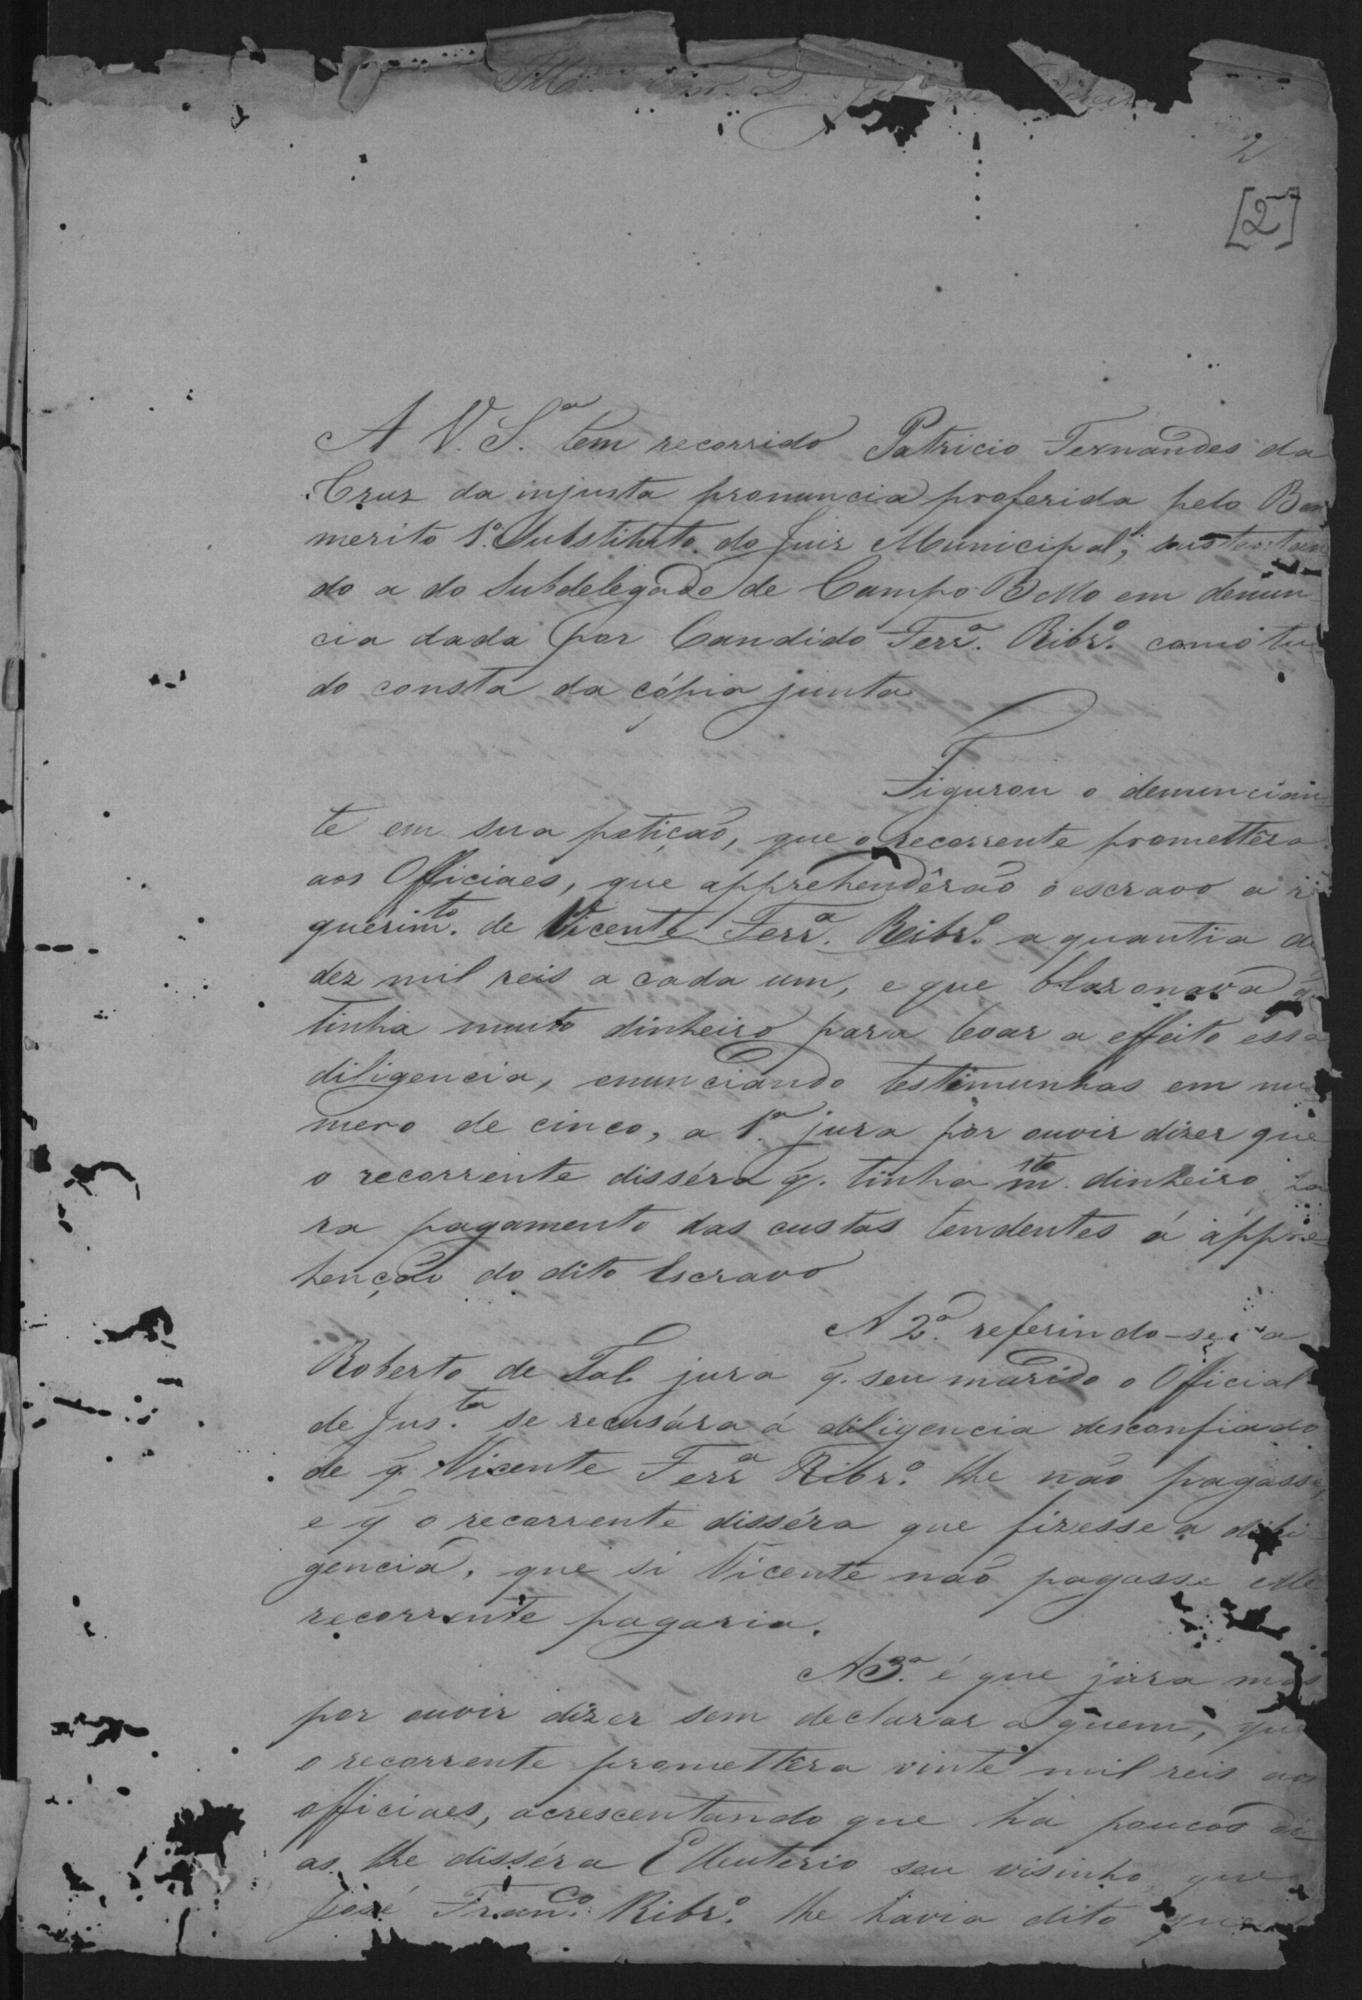 Ill.mo Snr. D.r Juiz de Direito
2
[2]
A V. S.ª tem recorrido Patricio Fernandes da
Cruz da injusta pronuncia proferida pelo Bene
merito 1.º Substituto do Juiz Municipal, sustentan
do a do Subdelegado de Campo Bello em denun
cia dada por Candido Ferr.ª Ribr.º como tu
do consta da cópia junta
Figurou o denuncian
te em sua petição, que o recorrente promettêra
aos Officiaes, que apprehendêrão o escravo a re
querim.to de Vicente Ferr.ª Ribr.º a quantia de
dez mil reis a cada um, e que blazonava q
tinha muito dinheiro para levar a effeito essa
diligencia, enunciando testimunhas em nu
mero de cinco, a 1.ª jura por ouvir dizer que
o recorrente disséra q. tinha m.to dinheiro pa
ra pagamento das custas tendentes á appre
henção do dito Escravo
A 2.ª referindo-se a
Roberto de Tal jura q. seu marido o Official
de Jus.ta se recusára á diligencia desconfiado
de q. Vicente Ferr.ª Ribr.º lhe não pagasse,
e q o recorrente disséra que fizesse a dili
gencia, que si Vicente não pagasse elle
recorrente pagaria.
A 3.ª é que jura mas
por ouvir dizer sem declarar a quem, que
o recorrente promettêra vinte mil reis aos
officiaes, acrescentando que ha poucos di
as lhe disséra Elleuterio seu visinho, que
José Fran.co Ribr.º lhe havia dito que